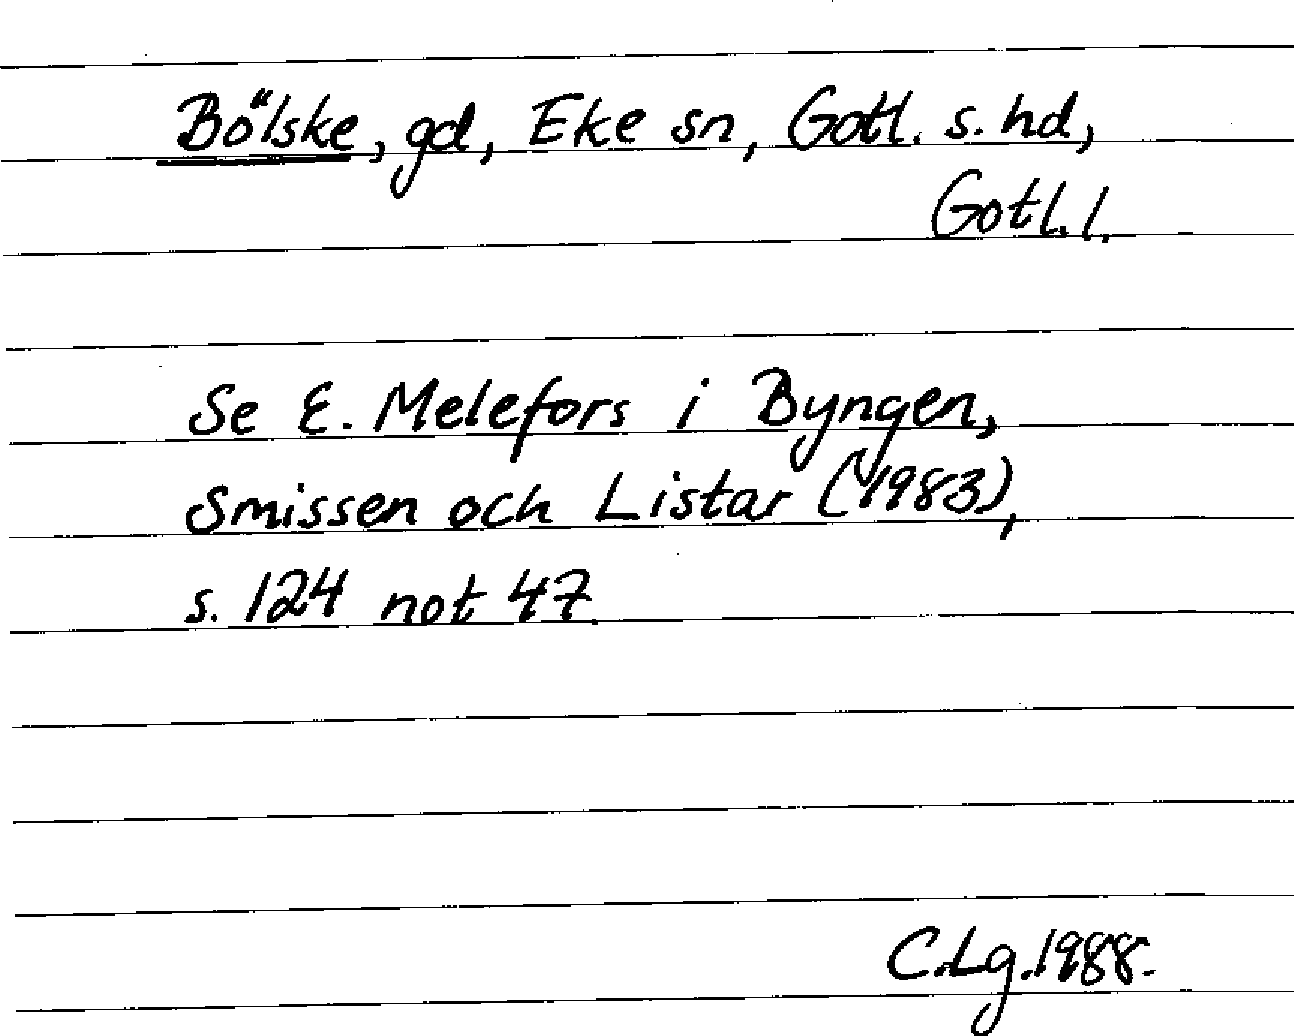 Bölske, gd, Eke sn, Gotl. s. hd,
Gotl. l.
Se E. Melefors i Byngen,
Smissen och Listar (1983),
s. 124 not 47.
C.Lg.1988.